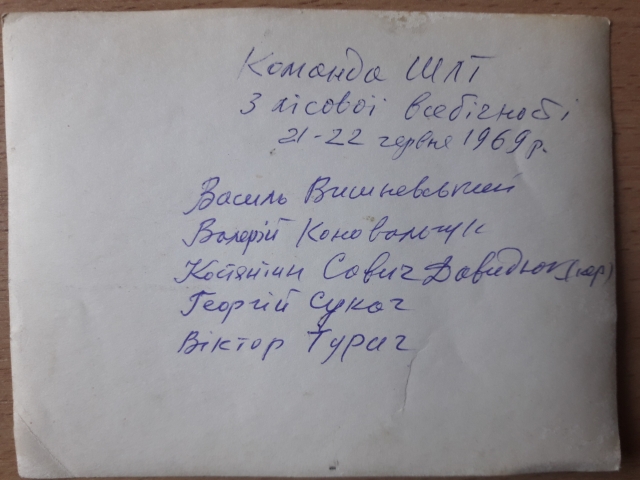 Команда ШЛТ
з лісової всебічності
21-22 червня 1969 р.
Василь Вишневський
Валерій Коновальчук
Костянтин Савич Давидюк
Георгій Сукач
Віктор Турич